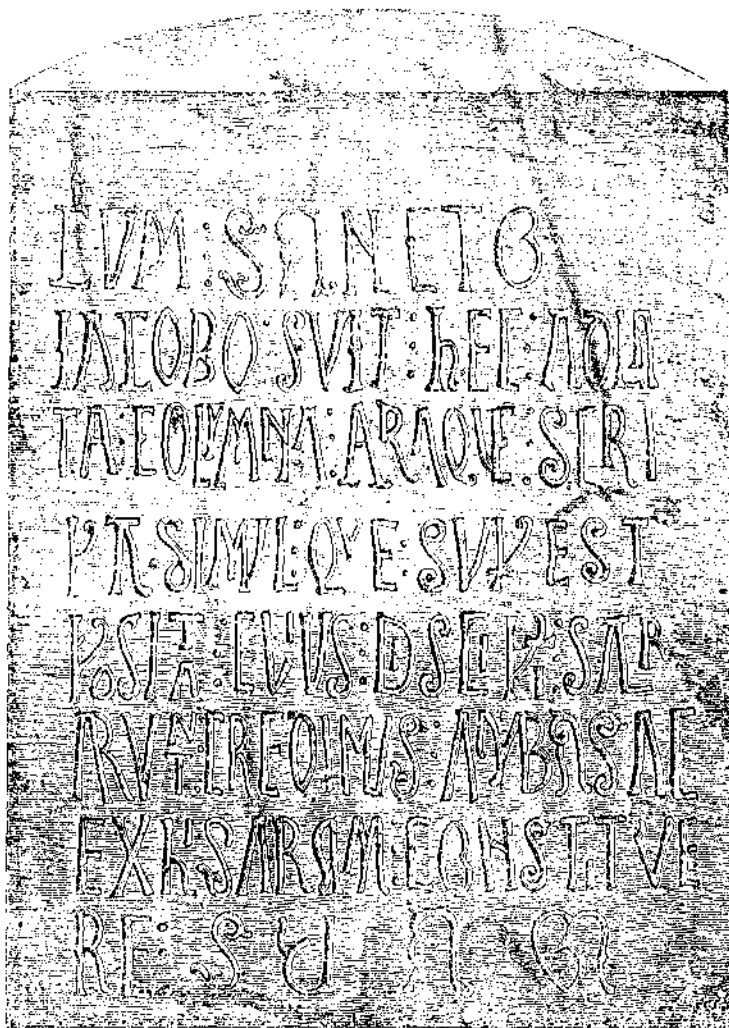 CVM : SANCTO
IACOBO : FVIT : hEC : ADLA
TA : COLVMNA : ARAQVE : SCRI
PTA : SIMVL : QVE : SVPEST
POSITA : CVIVS : DISCIPI : SACR
ARVNT : CREDIMVS : AMBAS AC
EX hIS ARAM : CONSTITVE
RE : SVAM